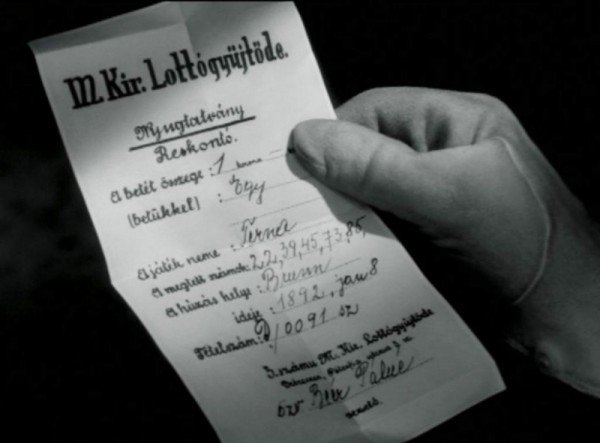 M. Kir. Lottógyüjtöde.
Nyugtatvány
Reskontó.
A betét összege : 1 korona
(betükkel) : Egy
A játék neme : Terna
A megtett számok: 22, 39, 45, 73, 85,
A húzás helye : Brünn
ideje : 1892, jan 8
Tételszám: 10091 sz
számu M. Kir. Lottógyüjtöde
vezető.